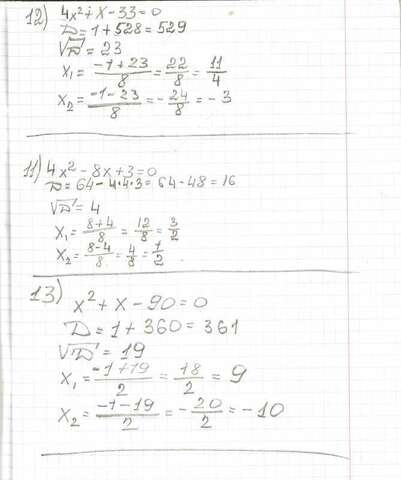 12) 4x² + x - 33 = 0
D = 1 + 528 = 529
√D = 23
x₁ = (-1 + 23)/8 = 22/8 = 11/4
x₂ = (-1 - 23)/8 = -24/8 = -3
11) 4x² - 8x + 3 = 0
D = 64 - 4·4·3 = 64 - 48 = 16
√D = 4
x₁ = (8+4)/8 = 12/8 = 3/2
x₂ = (8-4)/8 = 4/8 = 1/2
13) x² + x - 90 = 0
D = 1 + 360 = 361
√D = 19
x₁ = (-1+19)/2 = 18/2 = 9
x₂ = (-1-19)/2 = -20/2 = -10